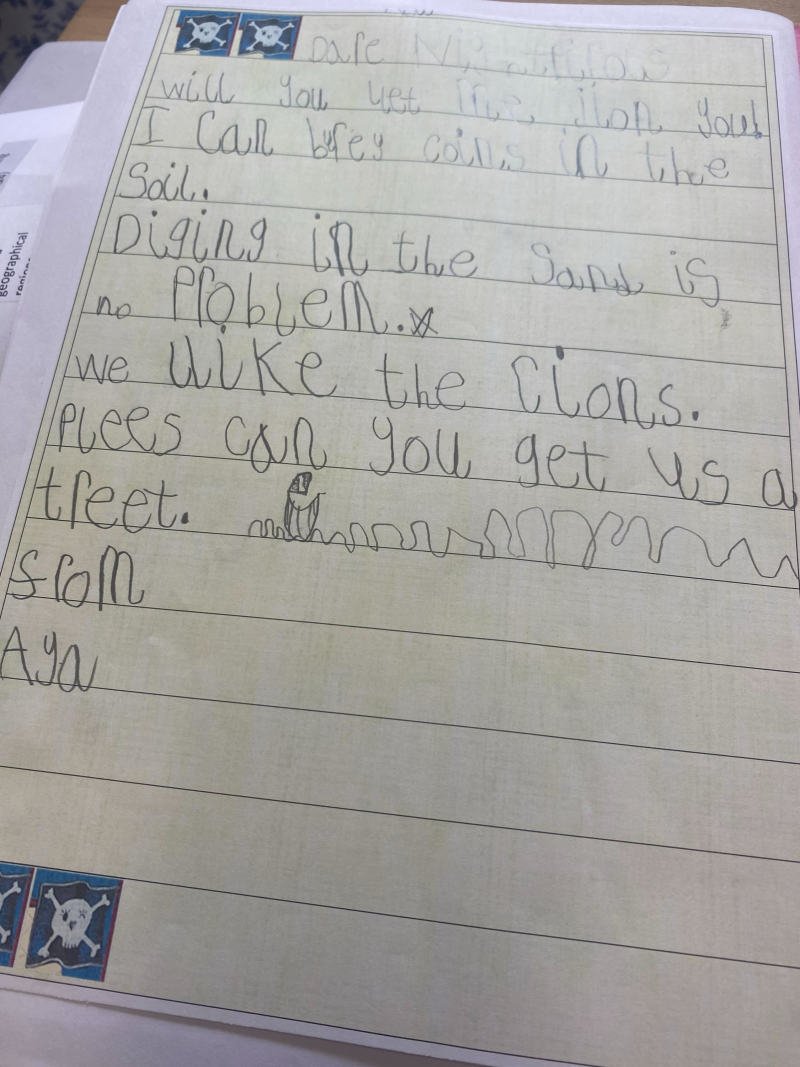 Dare
will you let me jion you
I can brey coins in the
Soil.
Diging in the Sand is
no Problem.
we like the cions.
Plees can you get us a
treet.
from
Aya
geographical